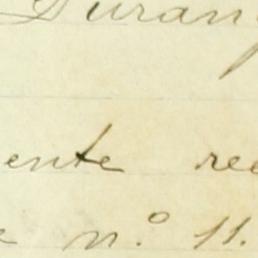 Duran
ente rec
e n.º 11.